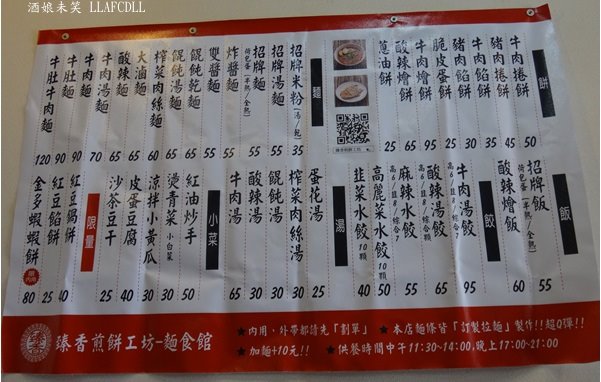 酒娘未笑 LLAFCDLL
餅
牛肉捲餅 50
豬肉捲餅 45
牛肉餡餅
豬肉餡餅
脆皮蛋餅
牛肉燴餅 95
酸辣燴餅 65
蔥油餅 25
麵
招牌米粉(湯/乾) 35
招牌湯麵 55
招牌麵(荷包蛋-半熟/全熟) 55
炸醬麵 55
雙醬麵 55
餛飩乾麵 55
餛飩湯麵 65
榨菜肉絲麵 60
大滷麵 65
酸辣麵 65
牛肉湯麵 70
牛肉麵 90
牛肚麵 90
牛肚牛肉麵 120
飯
招牌飯(荷包蛋-半熟/全熟) 55
酸辣燴飯 60
牛肉燴飯 95
餃
牛肉湯餃 高6/韭8/綜合7 95
酸辣湯餃 高6/韭8/綜合7
麻辣水餃 高6/韭8/綜合7
高麗菜水餃10顆 50
韭菜水餃10顆 40
湯
蛋花湯
榨菜肉絲湯
餛飩湯 30
酸辣湯 30
牛肉湯 65
小菜
紅油炒手 50
燙青菜 小白菜 30
涼拌小黃瓜 30
皮蛋豆腐 40
沙茶豆干 25
限量
紅豆鍋餅 40
紅豆餡餅 25
金多蝦蝦餅 80
臻香煎餅工坊-麵食館
★內用、外帶都請先「劃單」 ★本店麵條皆「訂製拉麵」製作!!超Q彈!!
★加麵+10元!! ★供餐時間中午11:30~14:00,晚上17:00~21:00